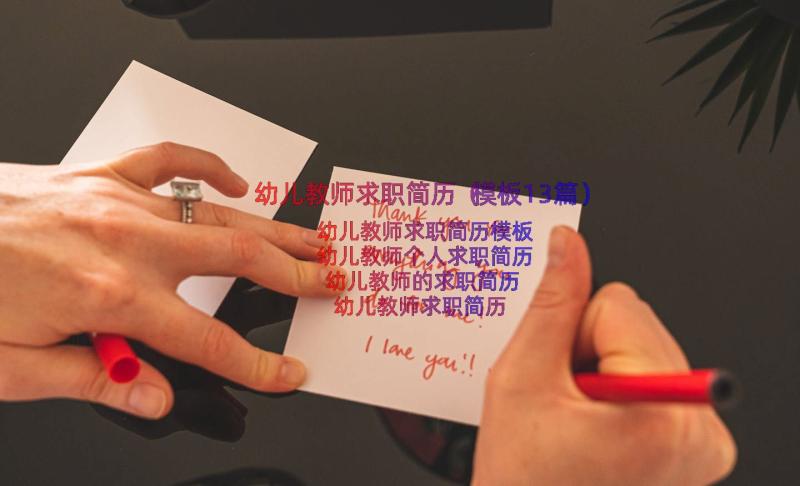 幼儿教师求职简历（模板13篇）
Thank you
幼儿教师求职简历模板
幼儿教师个人求职简历
幼儿教师的求职简历
幼儿教师求职简历
me!
I love you!!